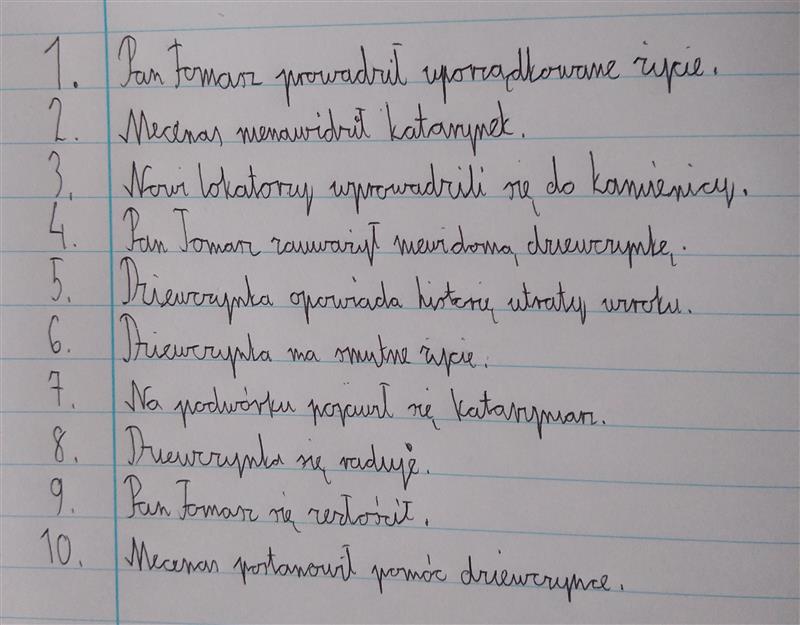 1. Pan Tomasz prowadził uporządkowane życie.
2. Mecenas nienawidził katarynek.
3. Nowi lokatorzy wprowadzili się do kamienicy.
4. Pan Tomasz zauważył niewidomą dziewczynkę.
5. Dziewczynka opowiada historię utraty wzroku.
6. Dziewczynka ma smutne życie.
7. Na podwórku pojawił się kataryniarz.
8. Dziewczynka się raduje.
9. Pan Tomasz się zezłościł.
10. Mecenas postanowił pomóc dziewczynce.